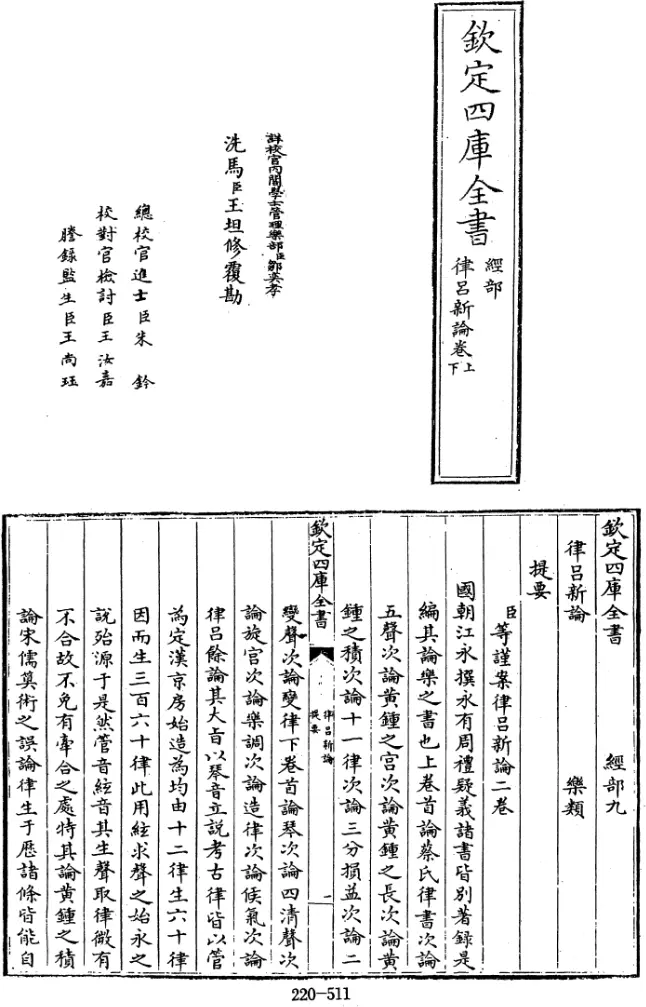 欽定四庫全書
經部
律呂新論卷上下
詳校官內閣學士管理樂部臣鄒奕孝
洗馬臣王坦修覆勘
總校官進士臣朱鈐
校對官檢討臣王汝嘉
謄錄監生臣王尚珏
欽定四庫全書 經部九
律呂新論 樂類
提要
臣等謹案律呂新論二卷
國朝江永撰永有周禮疑義諸書皆別著錄是
編其論樂之書也上卷首論蔡氏律書次論
五聲次論黃鍾之宮次論黃鍾之長次論黃
鍾之積次論十一律次論三分損益次論二
欽定四庫全書
律呂新論
提要
一
變聲次論變律下卷首論琴次論四清聲次
論旋宮次論樂調次論造律次論候氣次論
律呂餘論其大旨以琴音立說考古律皆以管
為定漢京房始造為均由十二律生六十律
因而生三百六十律此用絃求聲之始永之
說殆源于是然管音絃音其生聲取律微有
不合故不免有牽合之處特其論黃鍾之積
論宋儒算術之誤論律生于歷諸條皆能自
220-511